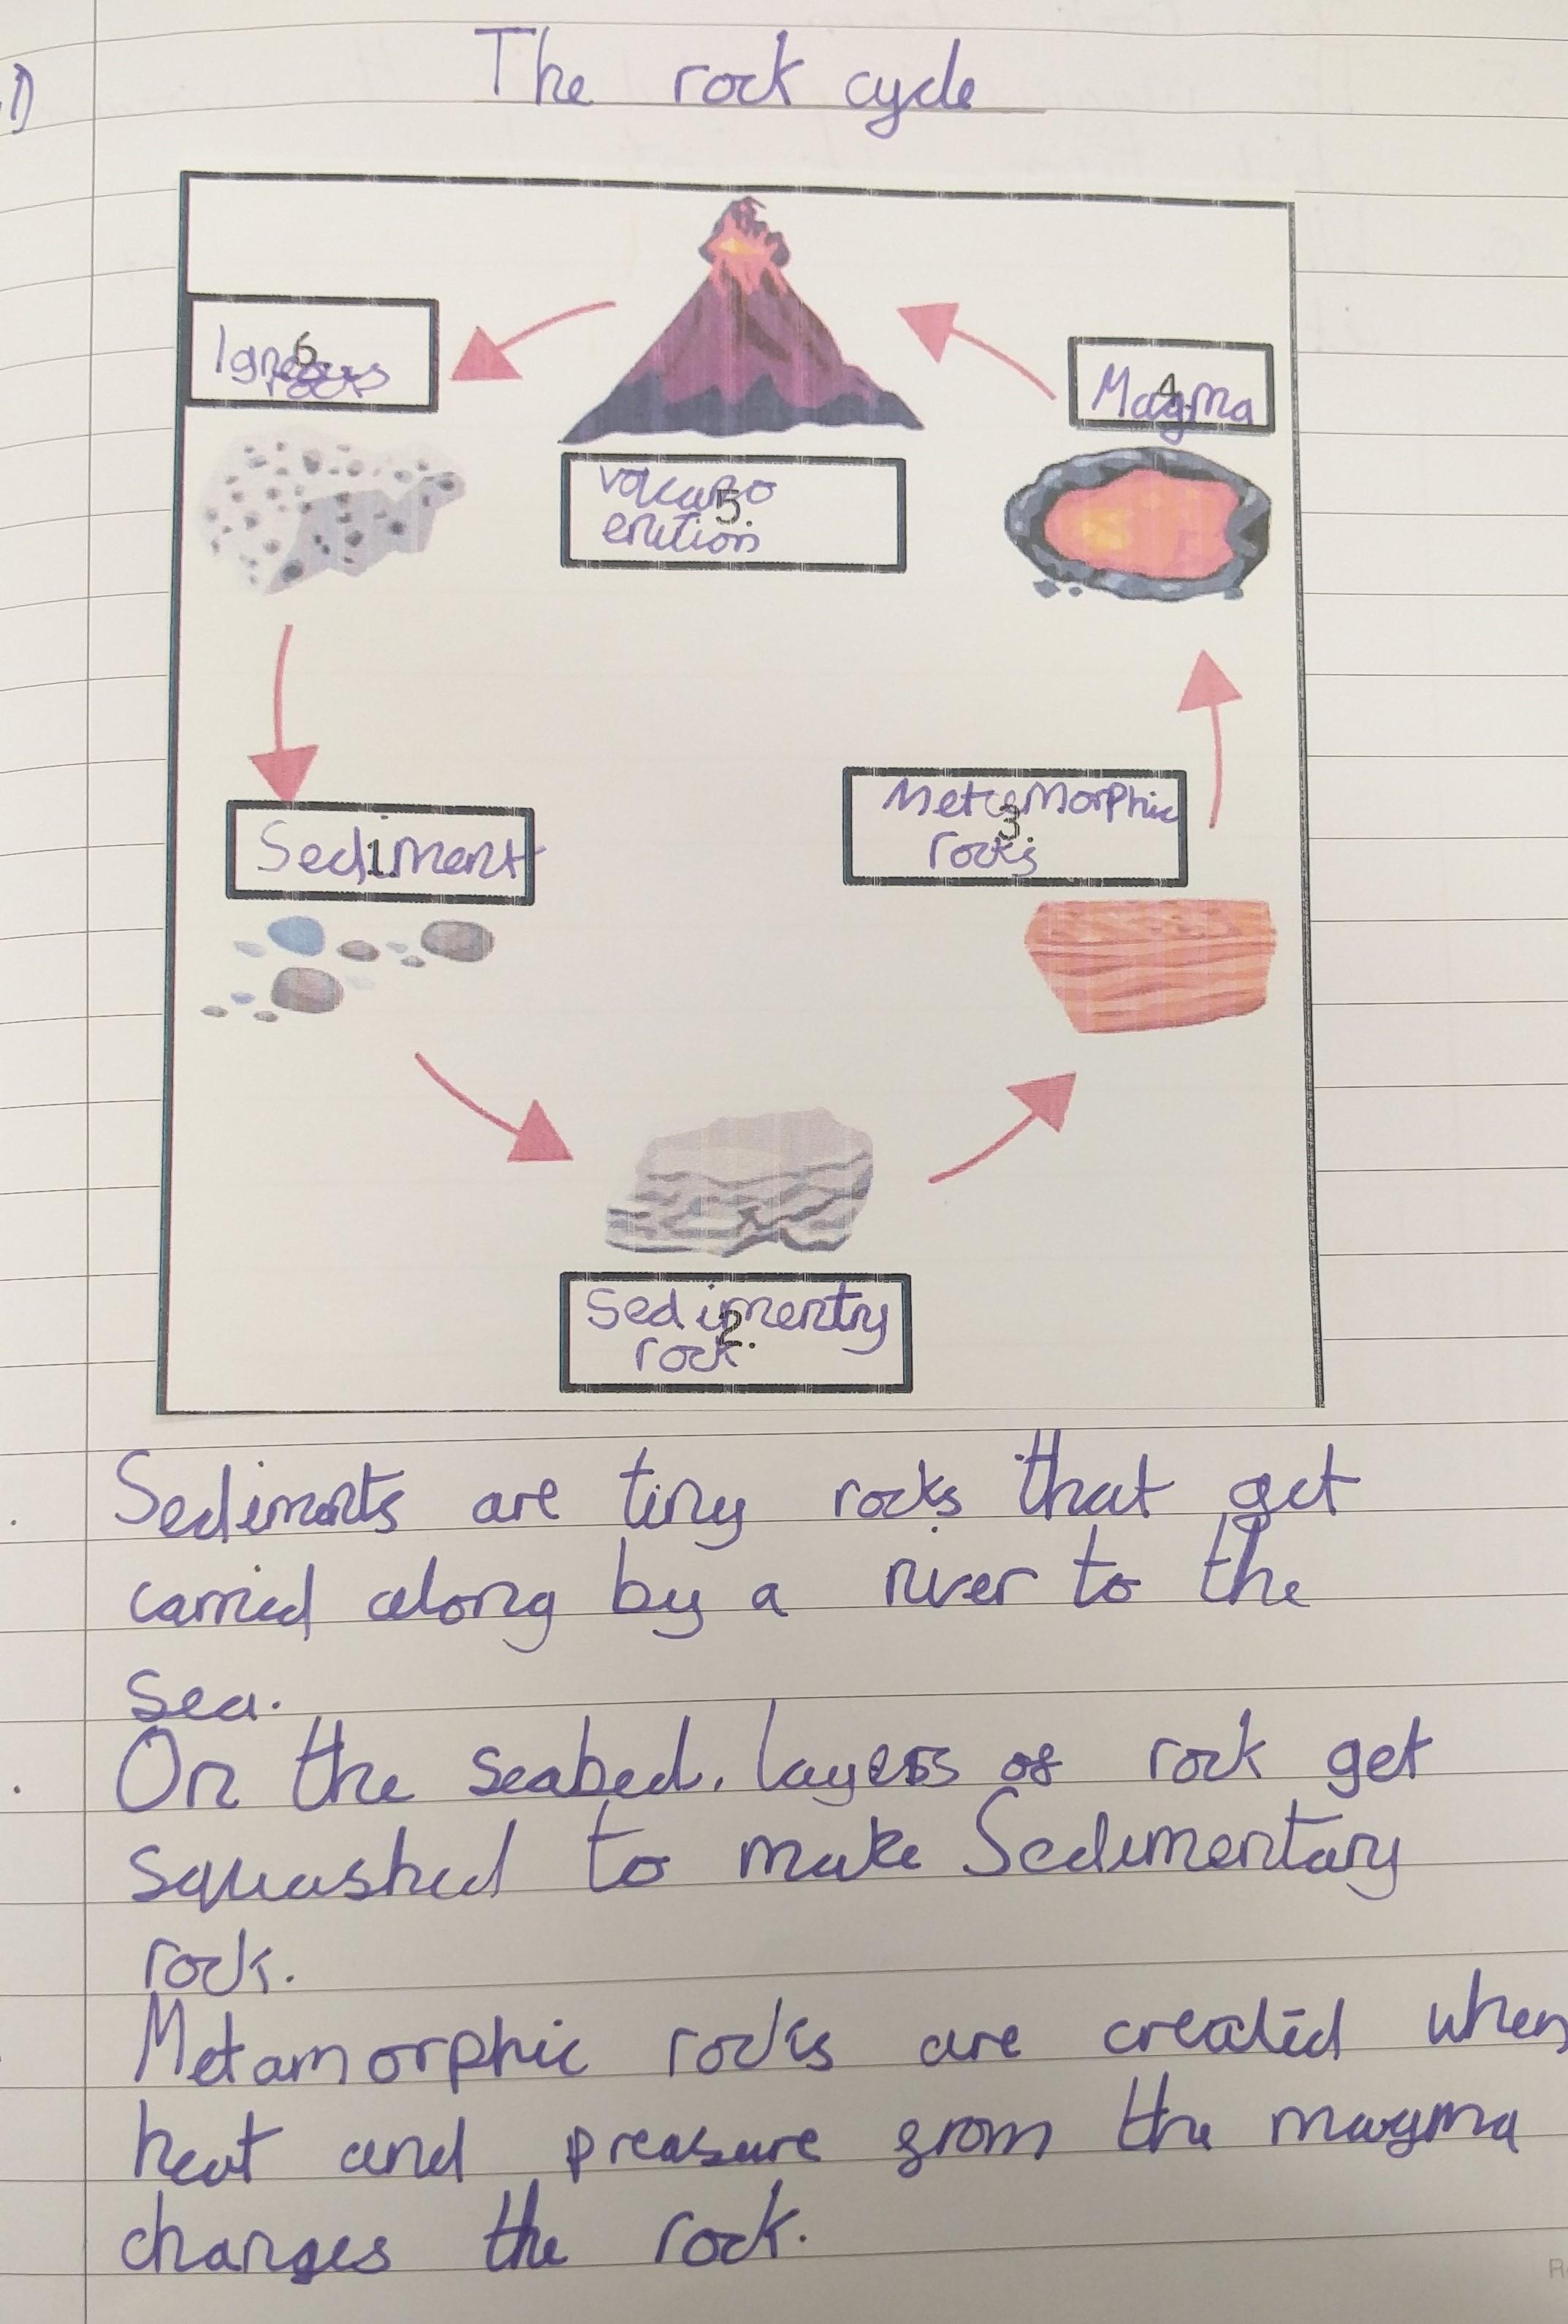 1)
The rock cycle
6
Igneous
rocks
4.
Magma
5.
volcano
erution
1.
Sediment
3.
Metamorphic
rocks
2.
Sedimentry
rock
Sediments are tiny rocks that get
carried along by a river to the
sea.
On the seabed, layers of rock get
squashed to make Sedimentary
rock.
Metamorphic rocks are created when
heat and preasure from the magma
changes the rock.